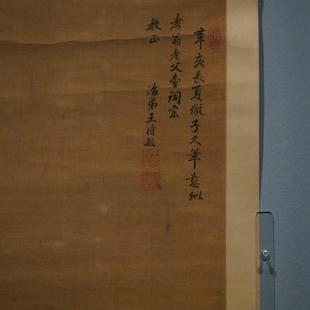 辛亥長夏倣子久筆意似
老父臺詞宗
教正
治弟王時敏